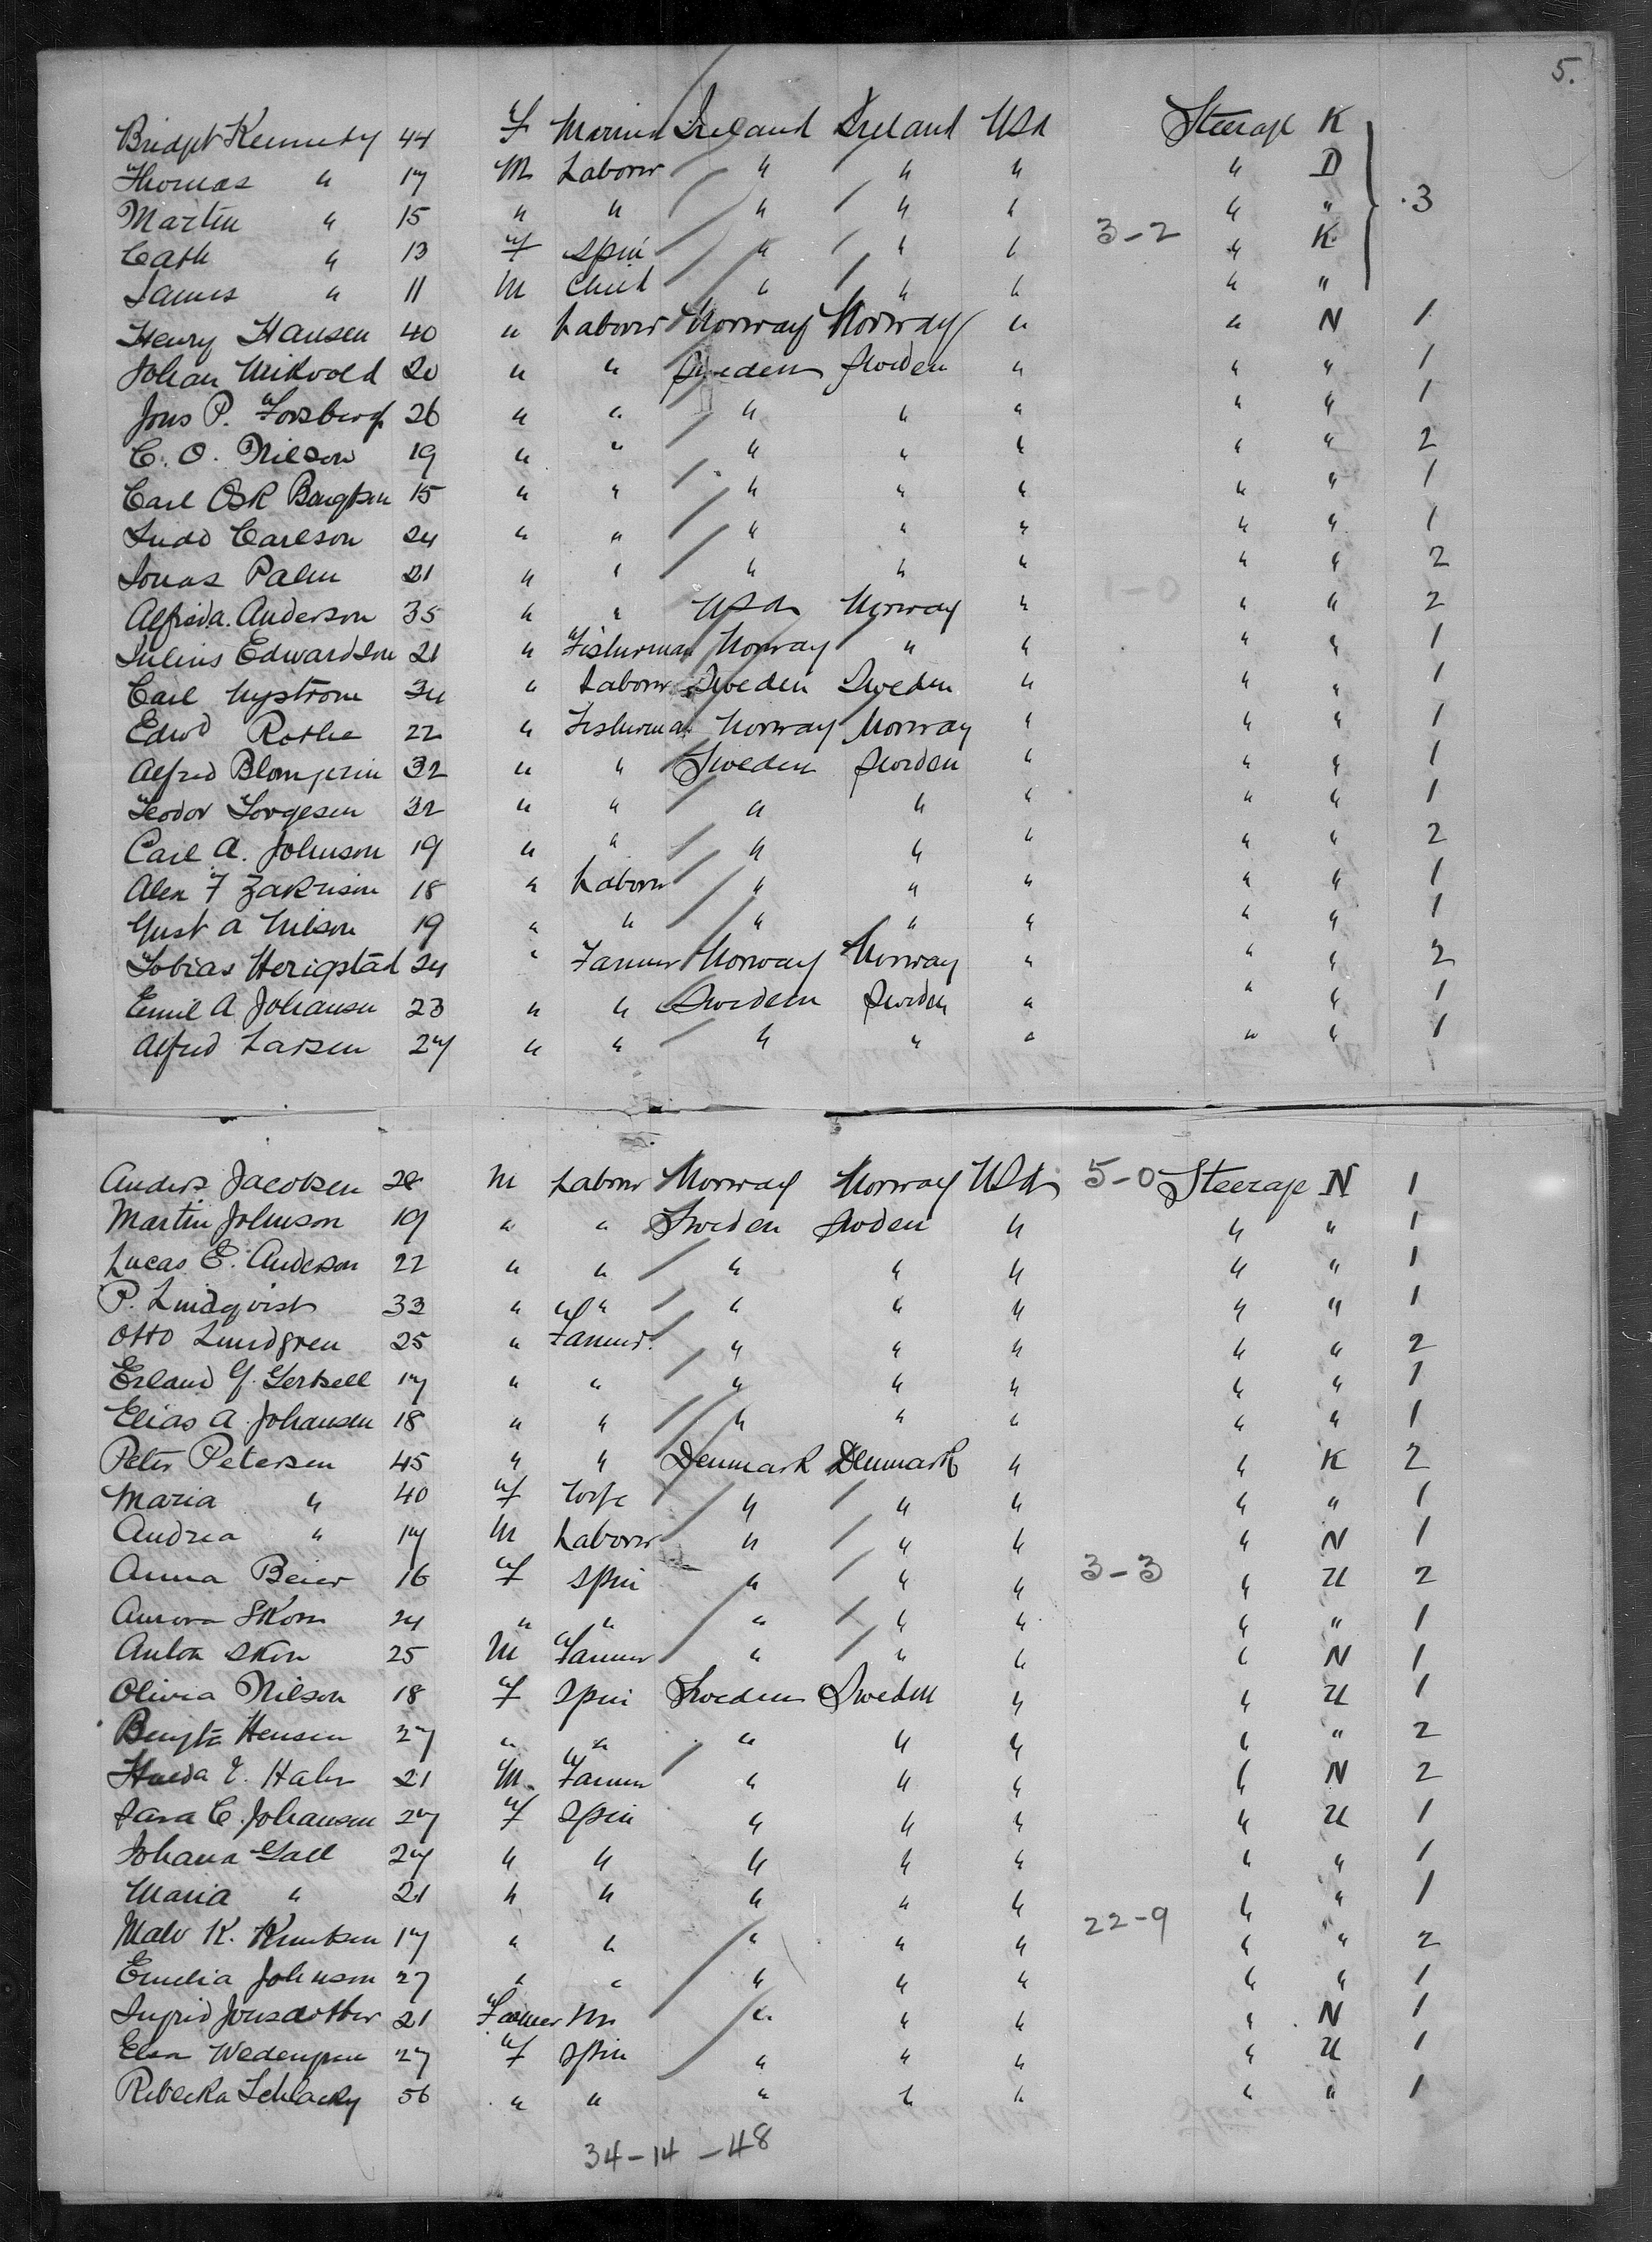 5.
Bridget Kennedy 44 F Married Ireland Ireland USA Steerage K
Thomas " 17 M Laborer " " " " D
Martin " 15 " " " " " " " 3
Cath " 13 F Spin " " " 3-2 " K
James " 11 M Child " " " " "
Henry Hansen 40 " Laborer Norway Norway " " N 1
Johan 20 " " Sweden Sweden " " " 1
Jons P. Forsberg 26 " " " " " " " 1
C. O. Nilson 19 " " " " " " " 2
Carl Osk Bengtson 15 " " " " " " " 1
Ludd Carlson 24 " " " " " " " 1
Jonas Palm 21 " " " " " " " 2
Alfrida Anderson 35 " " USA Norway " 1-0 " " 2
Julius Edwardson 21 " Fisherman Norway " " " " 1
Carl Nystrom 34 " Laborer Sweden Sweden " " " 1
Edwd Rothe 22 " Fisherman Norway Norway " " " 1
Alfred 32 " " Sweden Sweden " " " 1
Teodor Torgesen 32 " " " " " " " 1
Carl A. Johnson 19 " " " " " " " 2
Alex F Zakrison 18 " Laborer " " " " " 1
Gust A Nilson 19 " " " " " " " 1
Tobias Herigstad 24 " Farmer Norway Norway " " " 2
Emil A Johansen 23 " " Sweden Sweden " " " 1
Alfred Larsen 27 " " " " " " " 1
Anders Jacobsen 28 M Laborer Norway Norway USA 5-0 Steerage N 1
Martin Johnson 19 " " Sweden Sweden " " " 1
Lucas E. Anderson 22 " " " " " " " 1
P. Lindqvist 33 " " " " " " " 1
Otto Lundgren 25 " Farmer " " " " " 2
Erland G. 17 " " " " " " " 1
Elias A. Johansen 18 " " " " " " " 1
Peter Petersen 45 " " Denmark Denmark " " K 2
Maria " 40 F Wife " " " " " 1
Andrea " 17 M Laborer " " " " N 1
Anna Beier 16 F Spin " " " 3-3 " U 2
Aurora Skom 24 " " " " " " " 1
Anton Skon 25 M Farmer " " " " N 1
Olivia Nilson 18 F Spin Sweden Sweden " " U 1
Bengta Hensen 27 " " " " " " " 2
Hulda E. Hahr 21 M. Farmer " " " " N 2
Sara C. Johansen 27 F Spin " " " " U 1
Johana Gall 27 " " " " " " " 1
Maria " 21 " " " " " " " 1
Malv K. Knutsen 17 " " " " " 22-9 " " 2
Emelia Johnson 27 " " " " " " " 1
Ingrid Jonsdotter 21 Farmer M " " " " N 1
Elsa 27 F Spin " " " " U 1
Rebecka 56 " " " " " " " 1
34-14-48